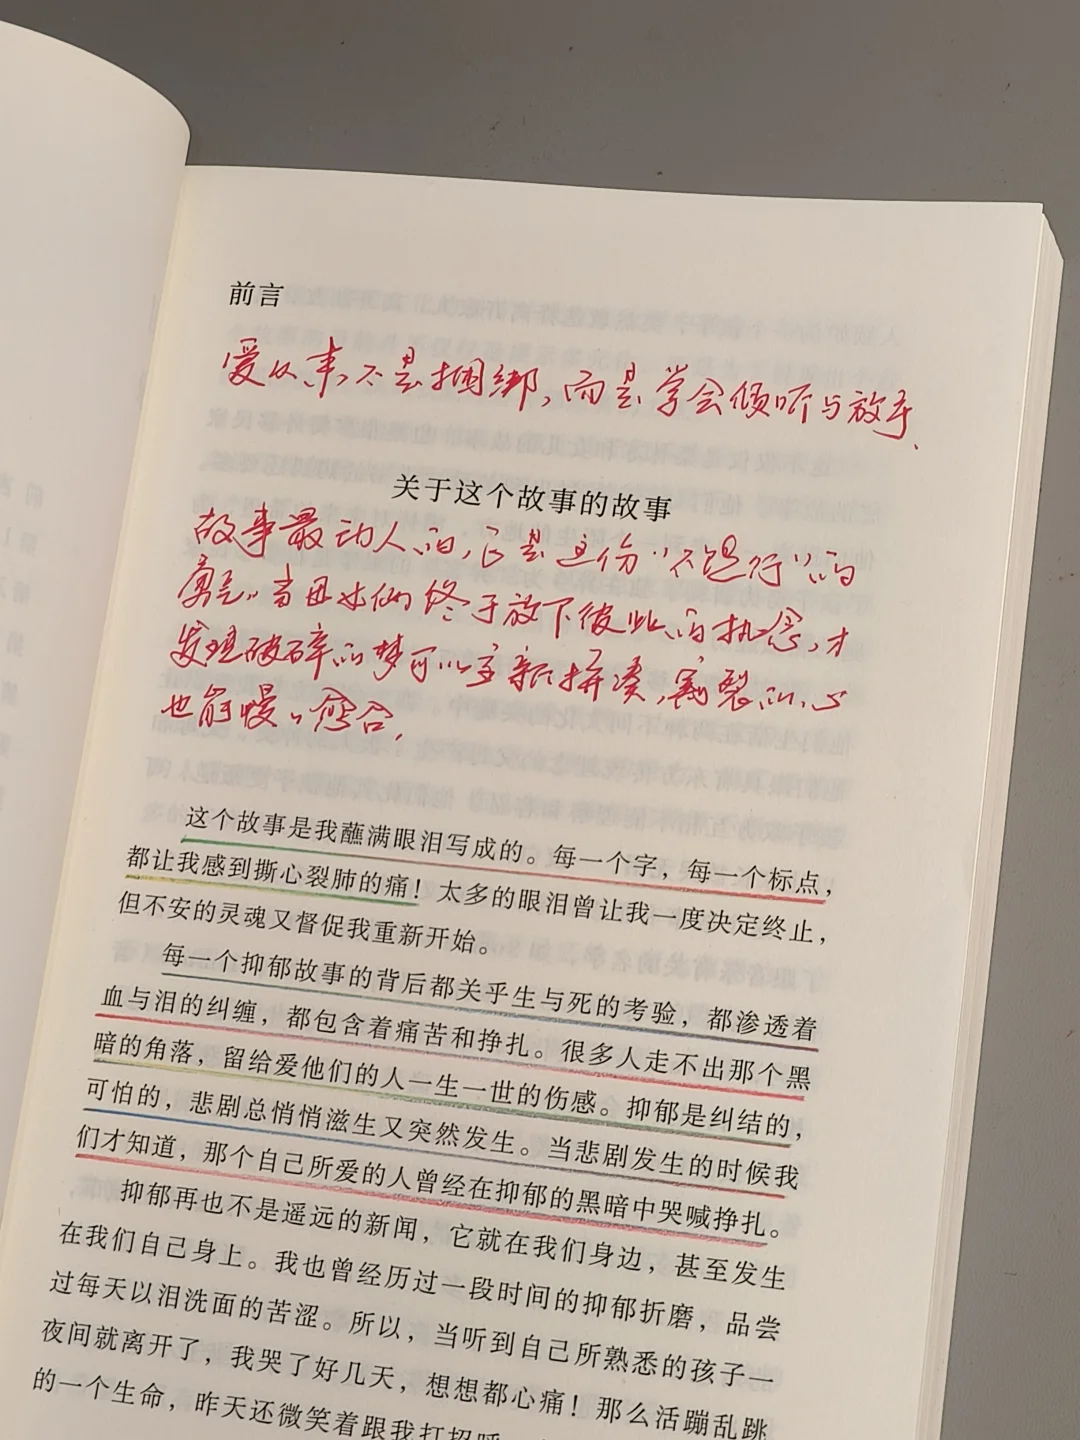 前言
爱从来不是捆绑，而是学会倾听与放手、
关于这个故事的故事
故事最动人的，是这份“不退行”的
勇气。当母女俩终于放下彼此的执念，才
发现破碎的梦可以重新拼凑，割裂的心
也能慢慢愈合，
这个故事是我蘸满眼泪写成的。每一个字，每一个标点，
都让我感到撕心裂肺的痛！太多的眼泪曾让我一度决定终止，
但不安的灵魂又督促我重新开始。
每一个抑郁故事的背后都关乎生与死的考验，都渗透着
血与泪的纠缠，都包含着痛苦和挣扎。很多人走不出那个黑
暗的角落，留给爱他们的人一生一世的伤感。抑郁是纠结的，
可怕的，悲剧总悄悄滋生又突然发生。当悲剧发生的时候我
们才知道，那个自己所爱的人曾经在抑郁的黑暗中哭喊挣扎。
抑郁再也不是遥远的新闻，它就在我们身边，甚至发生
在我们自己身上。我也曾经历过一段时间的抑郁折磨，品尝
过每天以泪洗面的苦涩。所以，当听到自己所熟悉的孩子一
夜间就离开了，我哭了好几天，想想都心痛！那么活蹦乱跳
的一个生命，昨天还微笑着跟我打招呼